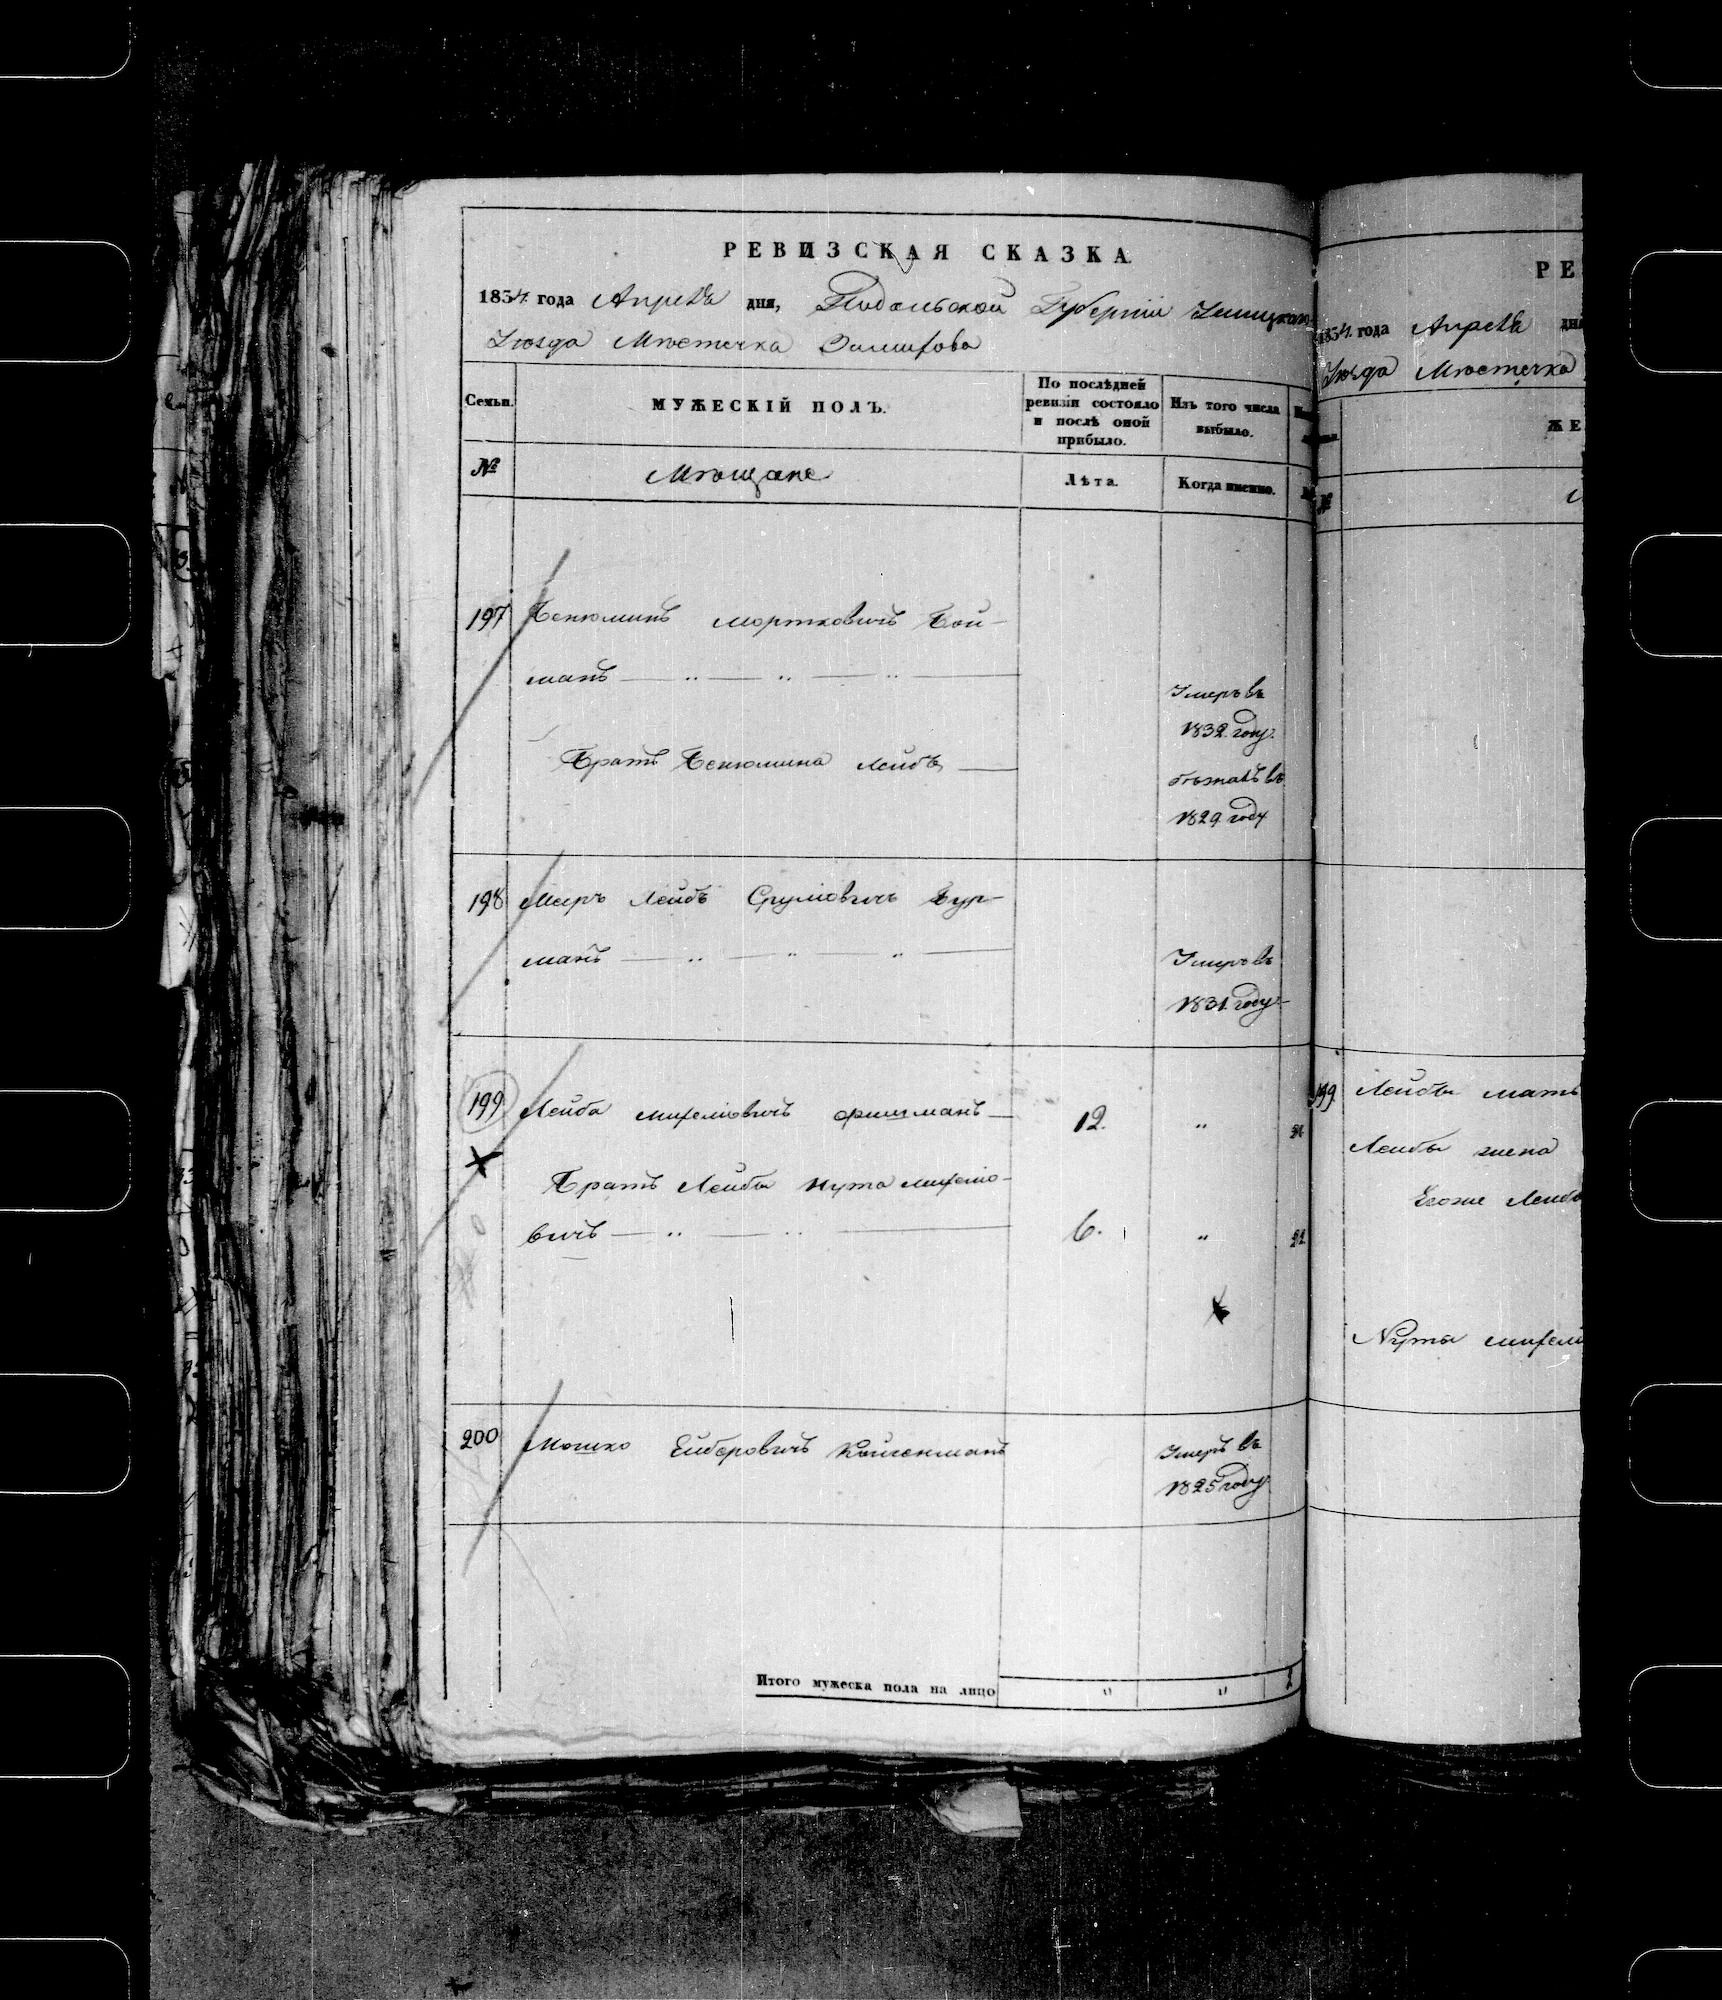 РЕВИЗСКАЯ СКАЗКА.
1834. года Апреля дня, Подольской Губерніи Ушицкаго
Уѣзда Мѣстечка Зинькова
Семьи.
МУЖЕСКІЙ ПОЛЪ.
По послѣдней
ревизіи состояло
и послѣ оной
прибыло.
Изъ того числа
выбыло.
№
Мѣщане
Лѣта.
Когда именно.
197 Бенюминъ Мортковичъ Бой-
манъ
Умеръ въ
1832. году.
Братъ Бенюмина Лейбъ
бѣжалъ въ
1829 году
198 Меиръ Лейбъ Сруліовичъ Бур-
манъ
Умеръ въ
1831. году
199 Лейба Михеліовичъ Фишманъ 12. „
Братъ Лейбы Нута Михеліо-
вичъ 6. „ 22.
200 Мошко Ейберовичъ Койленманъ
Умеръ въ
1825 году
Итого мужеска пола на лицо „ „ 2
РЕ
1834. года Апреля дня
Уѣзда Мѣстечка
ЖЕ
№
199 Лейбы мать
Лейбы жена
Егоже Лейбы
Нуты Михелі